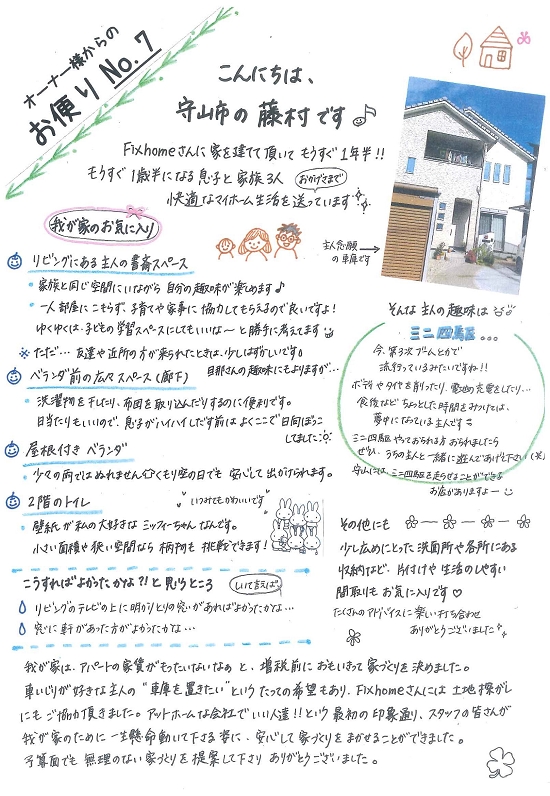 オーナー様からの
お便り No.7
こんにちは、
守山市の 藤村です♪
Fixhomeさんに 家を建てて頂いて もうすぐ1年半!!
もうすぐ 1歳半になる 息子と 家族3人 おかげさまで
快適なマイホーム生活を送っています
我が家のお気に入り
主人念願の車庫です
リビングにある 主人の書斎スペース
・家族と同じ空間にいながら 自分の趣味が楽しめます♪
・一人部屋にこもらず、子育てや家事に協力してもらえるので良いですよ!
ゆくゆくは、子どもの学習スペースにしてもいいな〜と勝手に考えてます
※ただ…友達や近所の方が来られたときは、少しはずかしいです
旦那さんの趣味にもよりますが…
ベランダ前の広々スペース(廊下)
・洗濯物を干したり、布団を取り込んだりするのに便利です。
日当たりもいいので、息子がハイハイしだす前は よくここで日向ぼっこ
してました
屋根付き ベランダ
・少々の雨ではぬれません くもり空の日でも 安心して 出かけられます。
2階のトイレ
いつみてもかわいいです
・壁紙が 私の大好きな ミッフィーちゃん なんです。
小さい面積や 狭い空間なら 柄物も 挑戦できます!
こうすればよかったかな?!と 思うところ
しいて言えば
リビングのテレビの上に 明かりとりの窓があればよかったかな…
窓に 軒があった方がよかったかな…
そんな 主人の趣味は
ミニ四駆…
今、第3次ブームとかで
流行っているみたいですね!!
ボディやタイヤを削ったり、電池の充電をしたり…
食後など ちょっとした時間をみつけては、
夢中になっている主人です
ミニ四駆やっておられる方 おられましたら
ぜひ、うちの主人と一緒に 遊んであげて下さい(笑)
守山には、ミニ四駆を走らせることができる
お店がありますよー
その他にも
少し広めにとった 洗面所や各所にある
収納など、片付けや 生活のしやすい
間取りも お気に入りです♡
たくさんのアドバイスに 楽しい打ち合わせ
ありがとうございました
我が家は、アパートの家賃がもったいないなぁ と、増税前に おもいきって 家づくりを決めました。
車いじりが好きな主人の “車庫を置きたい”という たっての希望もあり、Fixhomeさんには 土地探し
にもご協力頂きました。アットホームな会社で いい人達!!という 最初の印象通り、スタッフの皆さんが
我が家のために 一生懸命動いて下さる姿に、安心して家づくりを まかせることができました。
予算面でも 無理のない家づくりを 提案して下さり ありがとうございました。